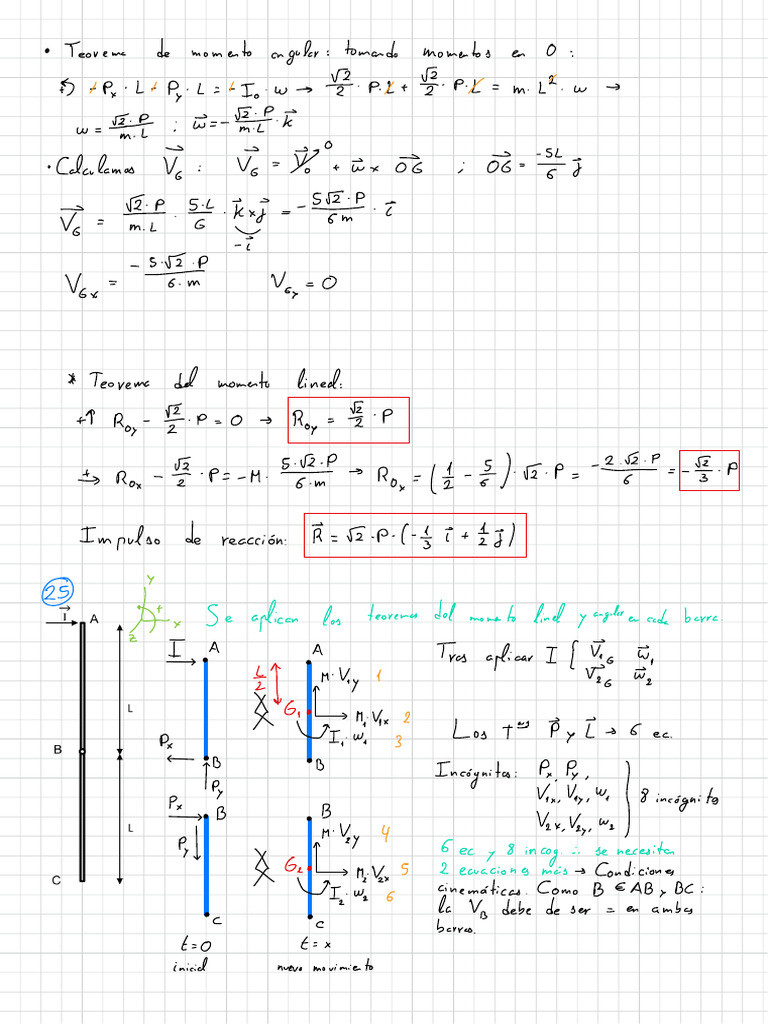 • Teorema de momento angular: tomando momentos en O:
↶) -Px · L - Py · L = - Io · w → √2/2 · P·L + √2/2 · P·L = m·L² · w →
w = √2·P/m·L ; w⃗ = -√2·P/m·L · k⃗
• Calculamos V⃗G : V⃗G = V⃗o⁰ + w⃗ × OG⃗ ; OG⃗ = -5L/6 j⃗
V⃗G = √2·P/m·L · 5·L/6 · k⃗×j⃗ = -5√2·P/6m · i⃗
-i⃗
VGx = -5·√2·P/6·m VGy = 0
* Teorema del momento lineal:
+↑ Roy - √2/2 · P = 0 → Roy = √2/2 · P
+→ Rox - √2/2 · P = -M · 5·√2·P/6·m → Rox = (1/2 - 5/6) · √2 · P = -2·√2·P/6 = -√2/3 · P
Impulso de reacción: R⃗ = √2 · P · (-1/3 i⃗ + 1/2 j⃗)
25
Se aplican los teoremas del momento lineal y angular en cada barra.
y
+
x
z
I
A
L
B
L
C
I
A
Px
B
Py
Px
B
Py
C
t=0
inicial
A
L/2
M·V1y 1
G1
M1·V1x 2
I1·w1 3
B
B
M·V2y 4
G2
M2·V2x 5
I2·w2 6
C
t=x
nuevo movimiento
Tras aplicar I { V⃗1G w⃗1
V⃗2G w⃗2
Los Tmas P⃗ y L⃗ → 6 ec.
Incógnitas: Px, Py,
V1x, V1y, w1
V2x, V2y, w2
8 incógnitas
6 ec y 8 incog. ∴ se necesitan
2 ecuaciones más → Condiciones
cinemáticas. Como B ∈ AB y BC:
la VB debe de ser = en ambas
barras.